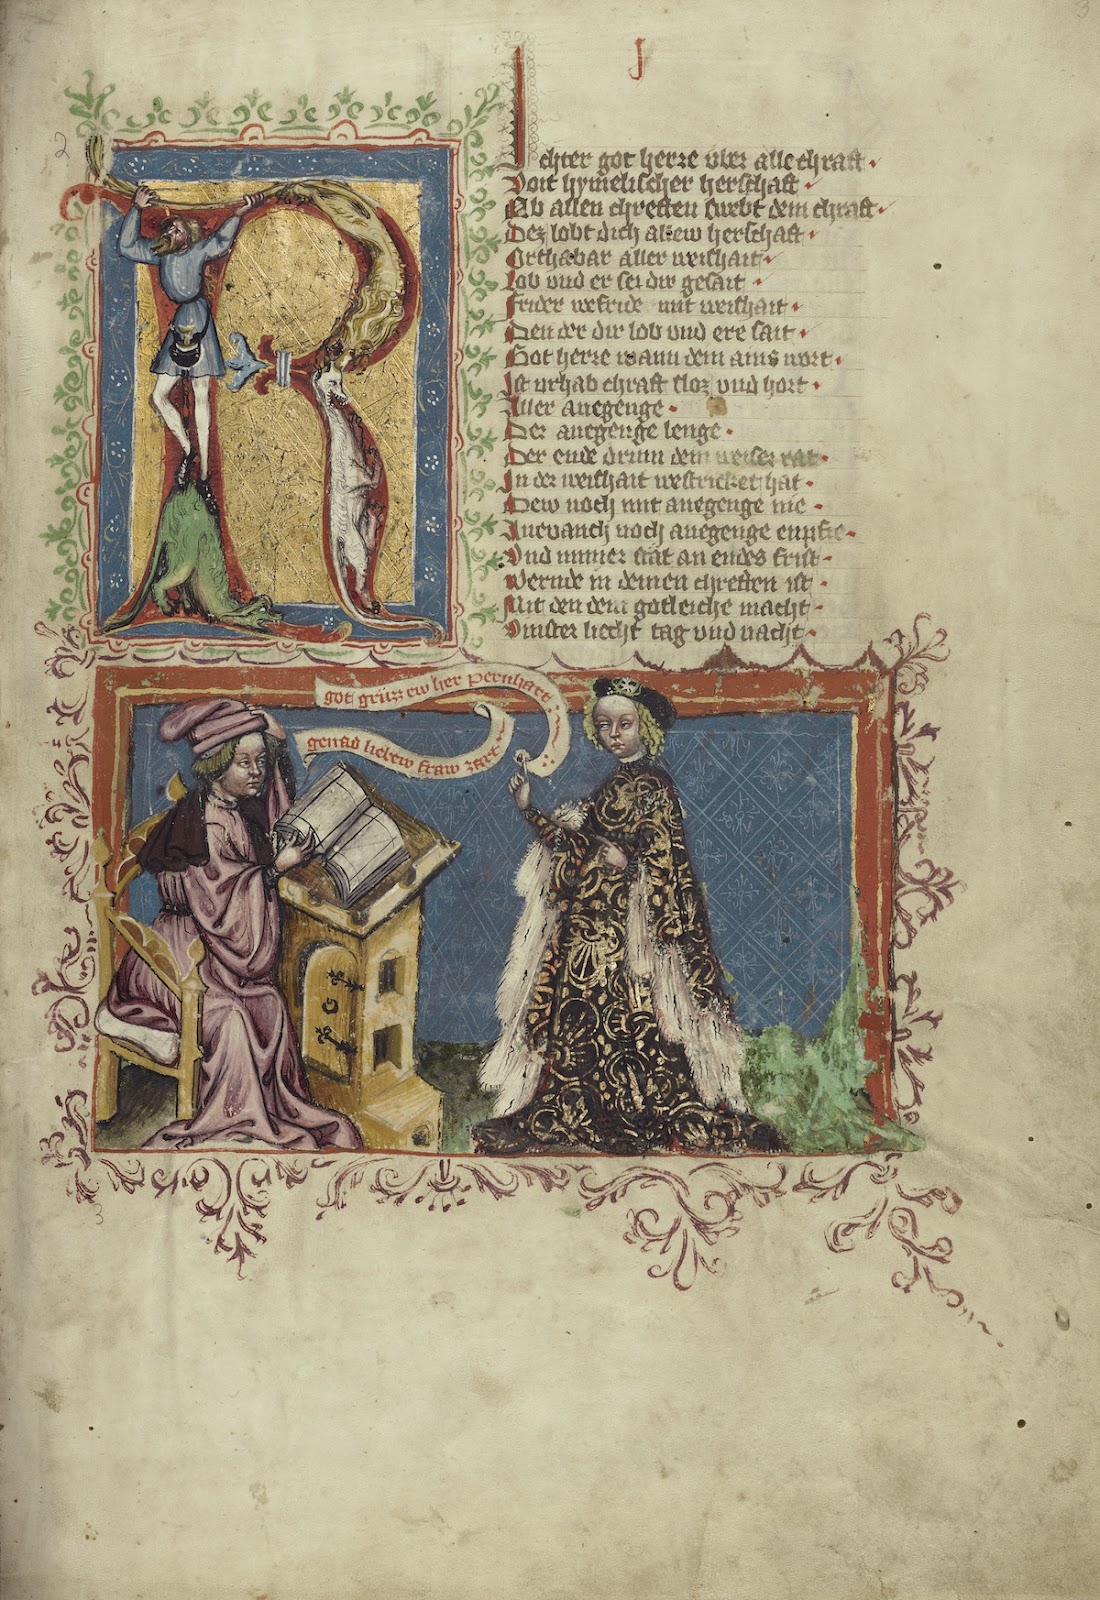 J
RIchter got herre vber alle chraft
Voit hymelischer herschaft
Ob allen chreften swebt dein chraft
Dez lobt dich allew herschaft
Orthabar aller weishait
Lob vnd er sei dir gesait
Frider mit weishait
Den der dir lob vnd ere sait
Got herre wann dein ains wort
Ist vrhab chraft sloz vnd hort
Aller anegenge
Der anegenge lenge
Der ende drum dein weiser rat
In der weishait westricket hat
Dew noch mit anegenge nie
Anevanch noch anegenge enpfie
Vnd nimer stat an endes frist
Wernde in deinen chreften ist
Mit den dein gotleiche macht
Vinster liecht tag vnd nacht
got grüzz ew her Pernhart
genad liebew fraw zart
2
3
3